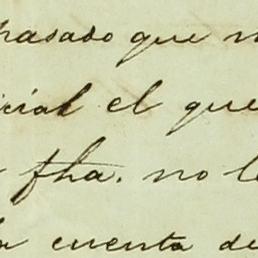 pasado que
icial el que
fha. no
cuenta de